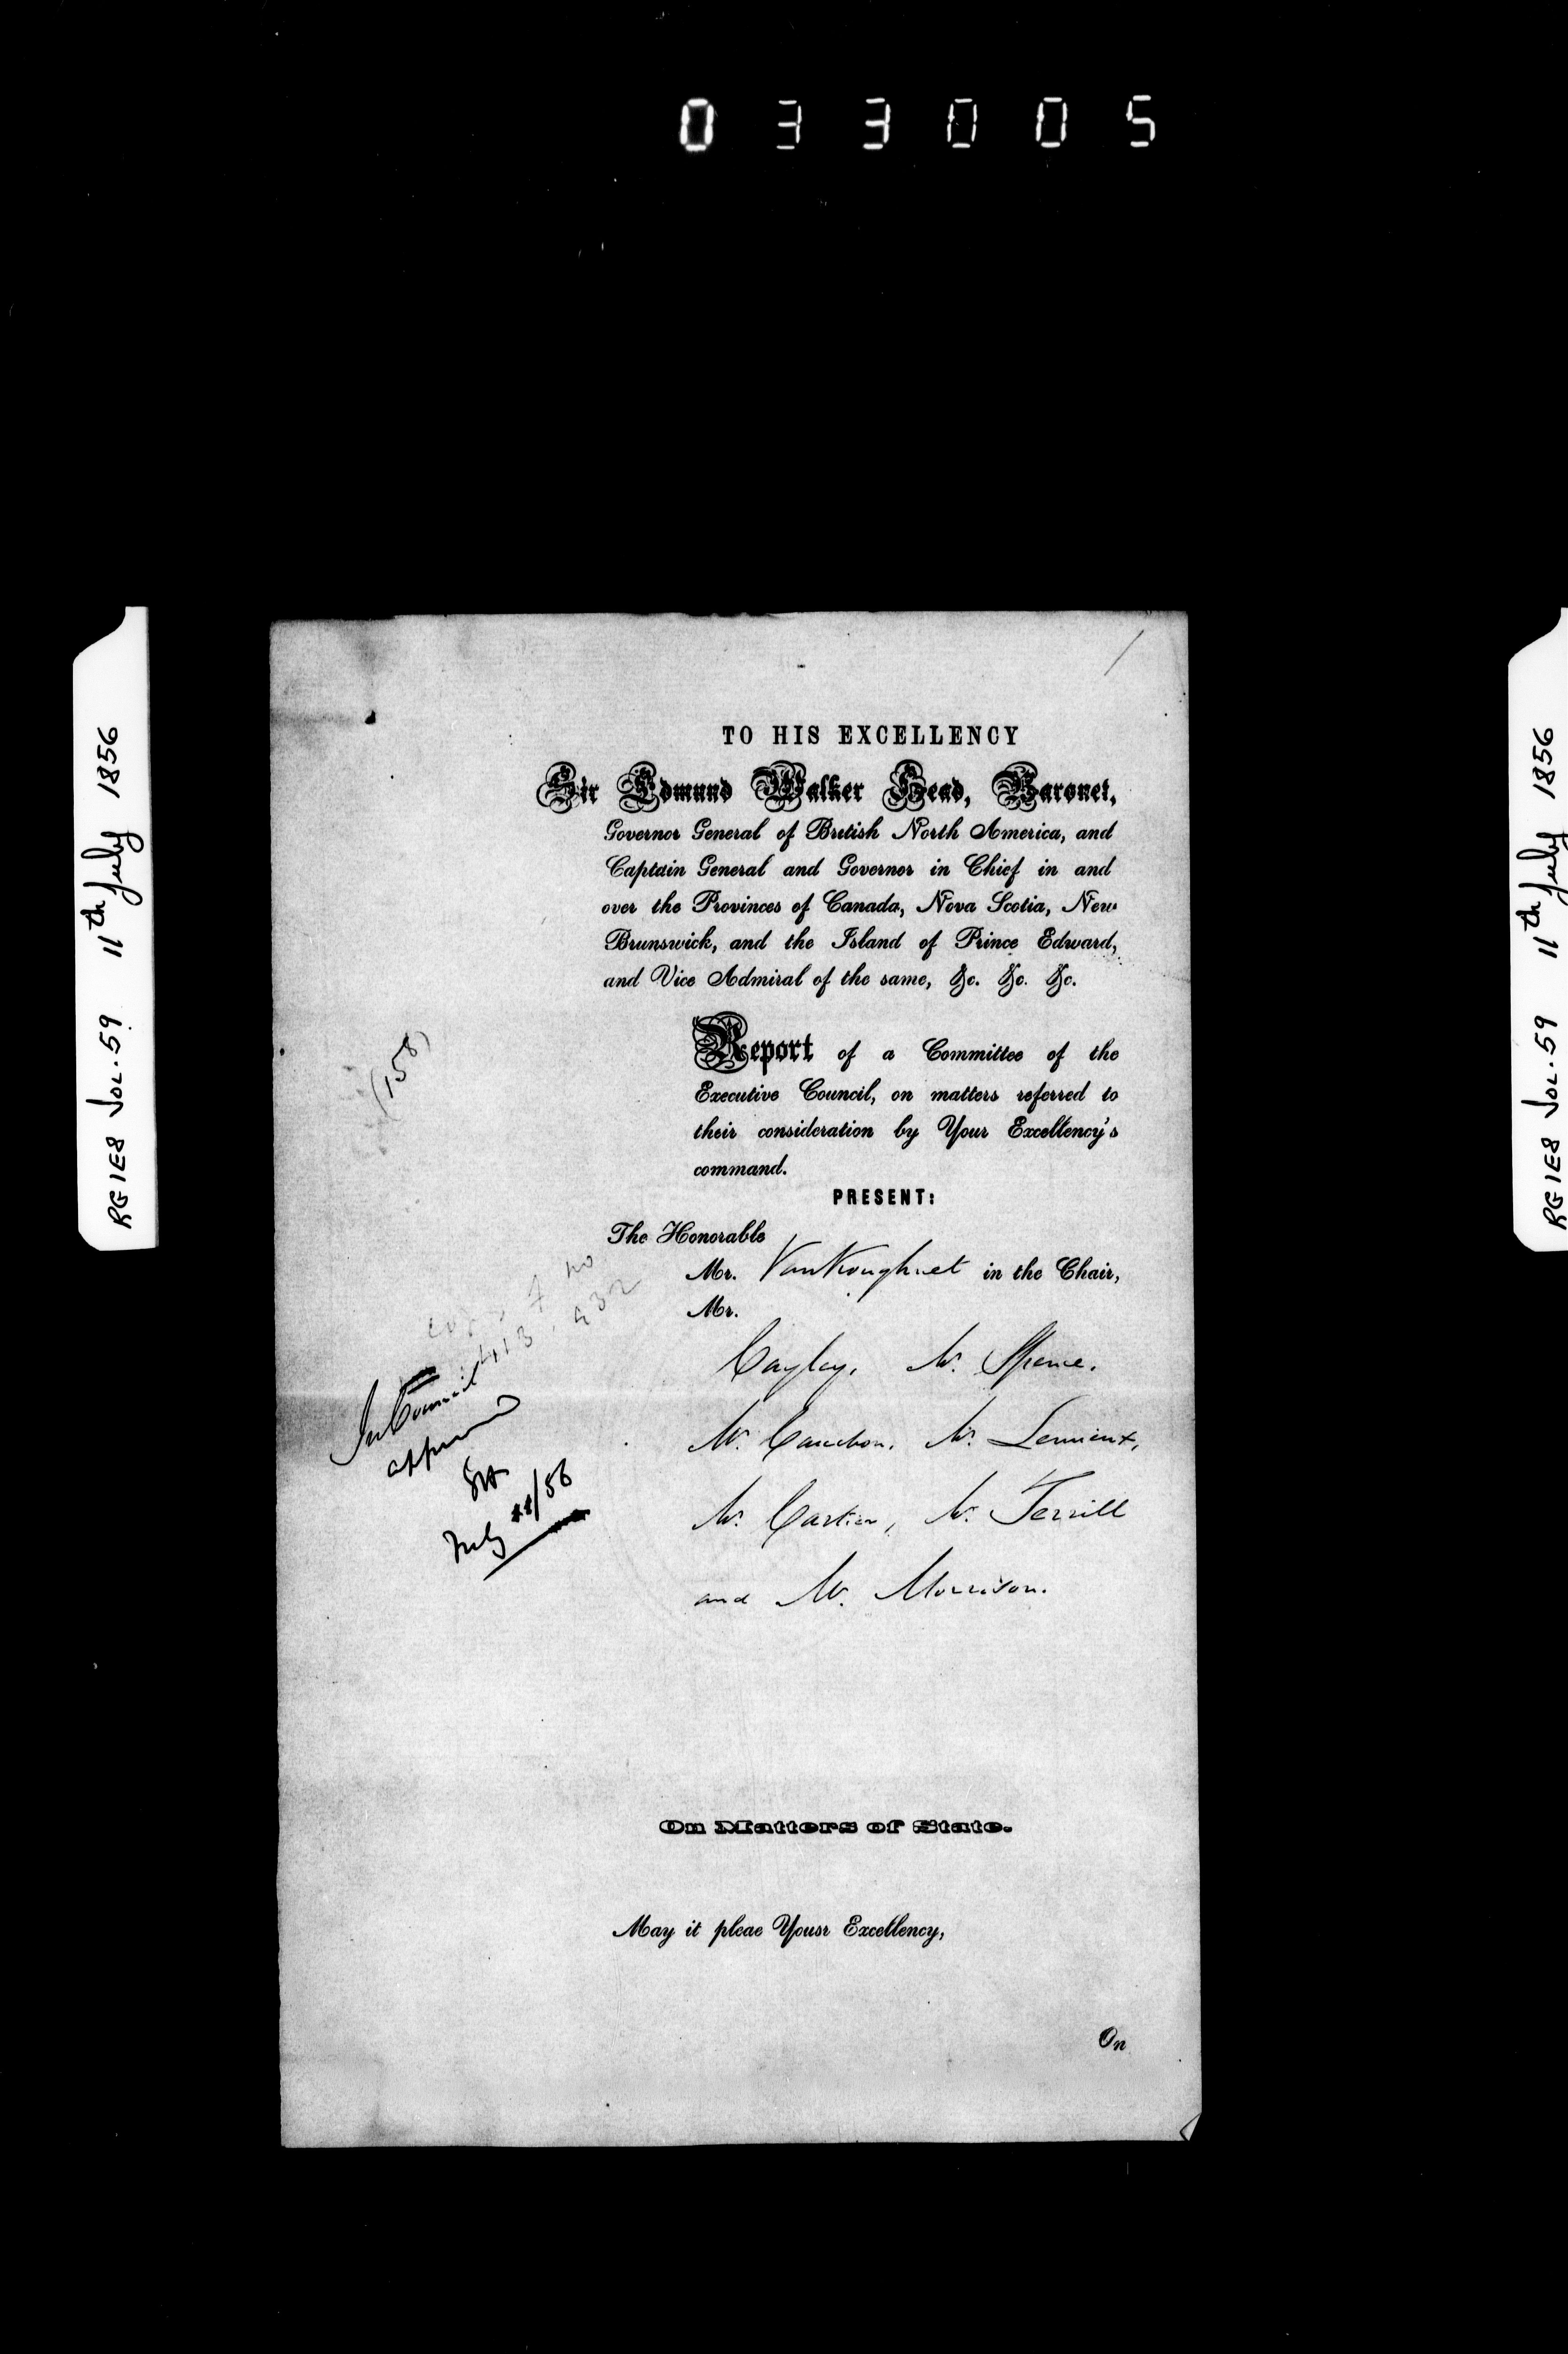 033005
RG1E8 VOL. 59 11th July 1856
RG1E8 VOL. 59 11th July 1856
TO HIS EXCELLENCY
Sir Edmund Walker Head, Baronet,
Governor General of British North America, and
Captain General and Governor in Chief in and
over the Provinces of Canada, Nova Scotia, New
Brunswick, and the Island of Prince Edward,
and Vice Admiral of the same, &c. &c. &c.
(158)
Report of a Committee of the
Executive Council, on matters referred to
their consideration by Your Excellency's
command.
PRESENT:
The Honorable
Mr. VanKoughnet in the Chair,
Mr.
Cayley, Mr. Spence.
Mr. Cauchon, Mr. Lemieux,
Mr. Cartier, Mr. Terrill
and Mr. Morrison.
In Council
approved
July 11/56
On Matters of State.
May it pleae Yousr Excellency,
On